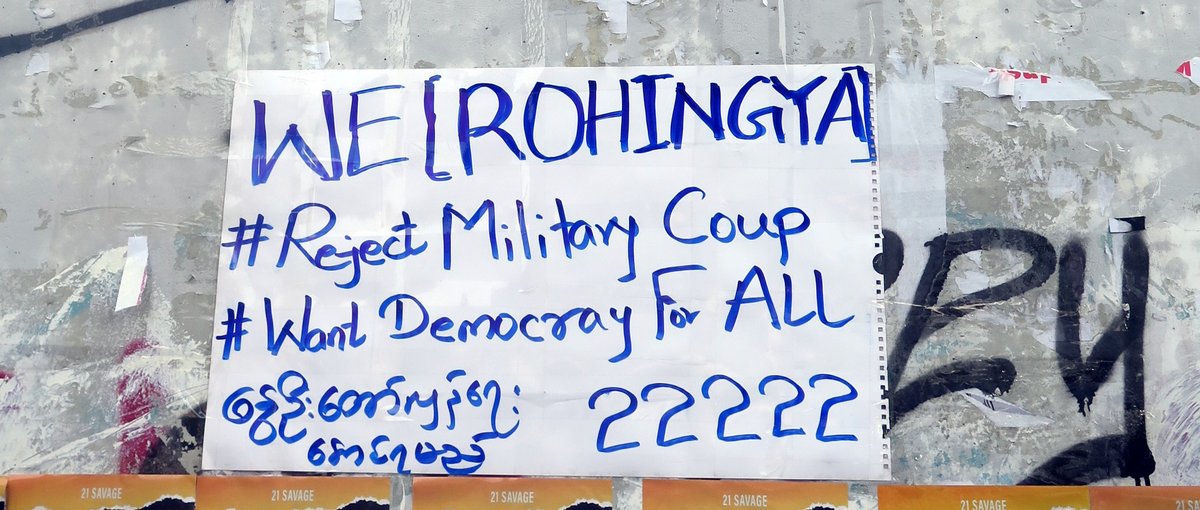 WE [ROHINGYA]
#Reject Military Coup
#Want Democray For ALL
နွေဦးတော်လှန်ရေး 22222
အောင်ရမည်
21 SAVAGE 21 SAVAGE 21 SAVAGE 21 SAVAGE 21 SAVAGE